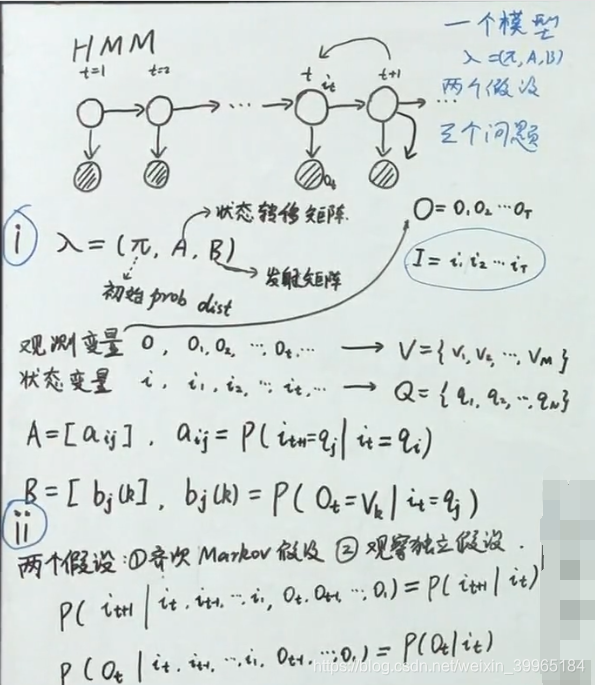 HMM
一个模型
λ=(π,A,B)
两个假设
三个问题
t=1 t=2 t it t+1
...
Ot
i
λ = (π, A, B)
状态转移矩阵.
发射矩阵
初始 prob dist
O = O1 O2 ... OT
I = i1 i2 ... iT
观测变量 O, O1, O2, ..., Ot, ... → V = {v1, v2, ..., vM}
状态变量 i, i1, i2, ..., it, ... → Q = {q1, q2, ..., qN}
A = [aij], aij = P(it+1=qj | it=qi)
B = [bj(k)], bj(k) = P(Ot=Vk | it=qj)
ii
两个假设:①齐次Markov假设 ②观察独立假设.
P(it+1 | it, it-1, ..., i1, Ot, Ot-1, ..., O1) = P(it+1 | it)
P(Ot | it, it-1, ..., i1, Ot-1, ..., O1) = P(Ot | it)
https://blog.csdn.net/weixin_39965184